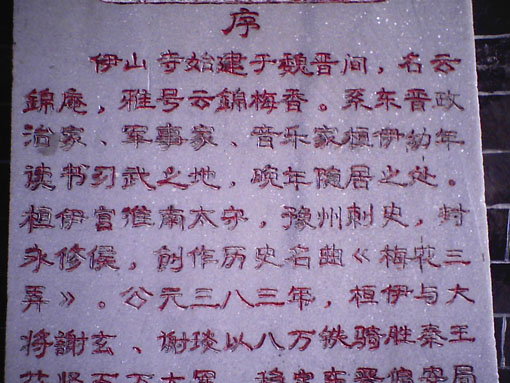 序
伊山寺始建于魏晋间，名云
錦庵，雅号云錦梅香。系东晋政
治家、军事家、音乐家桓伊幼年
读书习武之地，晚年隐居之处。
桓伊官淮南太守，豫州刺史，封
永修侯，創作历史名曲《梅花三
弄》。公元三八三年，桓伊与大
将謝玄、谢琰以八万铁骑胜秦王
苻坚百万大军，稳定东晋偏安局